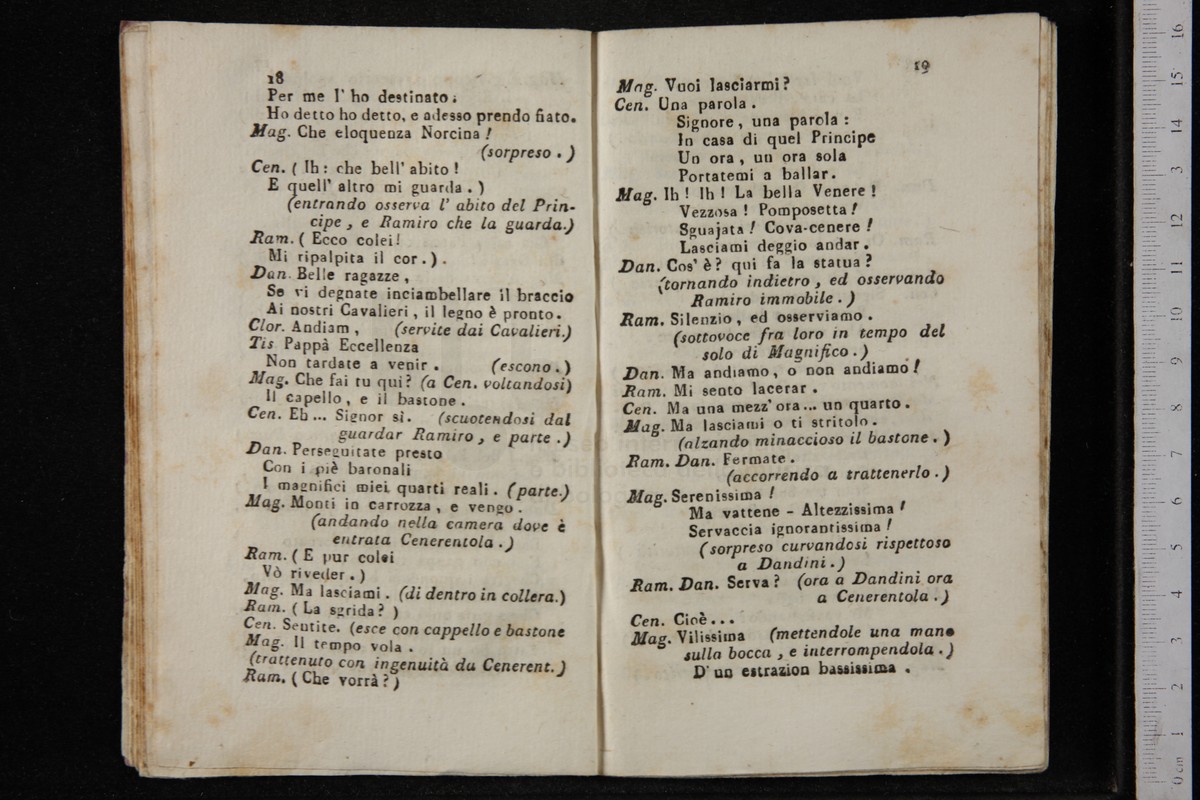 18
Per me l' ho destinato;
Ho detto ho detto, e adesso prendo fiato.
Mag. Che eloquenza Norcina!
(sorpreso.)
Cen. ( Ih: che bell' abito!
E quell' altro mi guarda.)
(entrando osserva l' abito del Prin-
cipe, e Ramiro che la guarda.)
Ram. ( Ecco colei!
Mi ripalpita il cor.).
Dan. Belle ragazze,
Se vi degnate inciambellare il braccio
Ai nostri Cavalieri, il legno è pronto.
Clor. Andiam, (servite dai Cavalieri.)
Tis Pappà Eccellenza
Non tardate a venir. (escono.)
Mag. Che fai tu qui? (a Cen. voltandosi)
Il capello, e il bastone.
Cen. Eh... Signor sì. (scuotendosi dal
guardar Ramiro, e parte.)
Dan. Perseguitate presto
Con i piè baronali
I magnifici miei quarti reali. (parte.)
Mag. Monti in carrozza, e vengo.
(andando nella camera dove è
entrata Cenerentola.)
Ram. ( E pur colei
Vò riveder.)
Mag. Ma lasciami. (di dentro in collera.)
Ram. ( La sgrida? )
Cen. Sentite. (esce con cappello e bastone
Mag. Il tempo vola.
(trattenuto con ingenuità da Cenerent.)
Ram. ( Che vorrà?)
19
Mag. Vuoi lasciarmi?
Cen. Una parola.
Signore, una parola:
In casa di quel Principe
Un ora, un ora sola
Portatemi a ballar.
Mag. Ih! Ih! La bella Venere!
Vezzosa! Pomposetta!
Sguajata! Cova-cenere!
Lasciami deggio andar.
Dan. Cos' è? qui fa la statua?
(tornando indietro, ed osservando
Ramiro immobile.)
Ram. Silenzio, ed osserviamo.
(sottovoce fra loro in tempo del
solo di Magnifico.)
Dan. Ma andiamo, o non andiamo!
Ram. Mi sento lacerar.
Cen. Ma una mezz' ora... un quarto.
Mag. Ma lasciami o ti stritolo.
(alzando minaccioso il bastone.)
Ram. Dan. Fermate.
(accorrendo a trattenerlo.)
Mag. Serenissima!
Ma vattene - Altezzissima!
Servaccia ignorantissima!
(sorpreso curvandosi rispettoso
a Dandini.)
Ram. Dan. Serva? (ora a Dandini ora
a Cenerentola.)
Cen. Cioè...
Mag. Vilissima (mettendole una mano
sulla bocca, e interrompendola.)
D' un estrazion bassissima.
0 cm 1 2 3 4 5 6 7 8 9 10 11 12 13 14 15 16